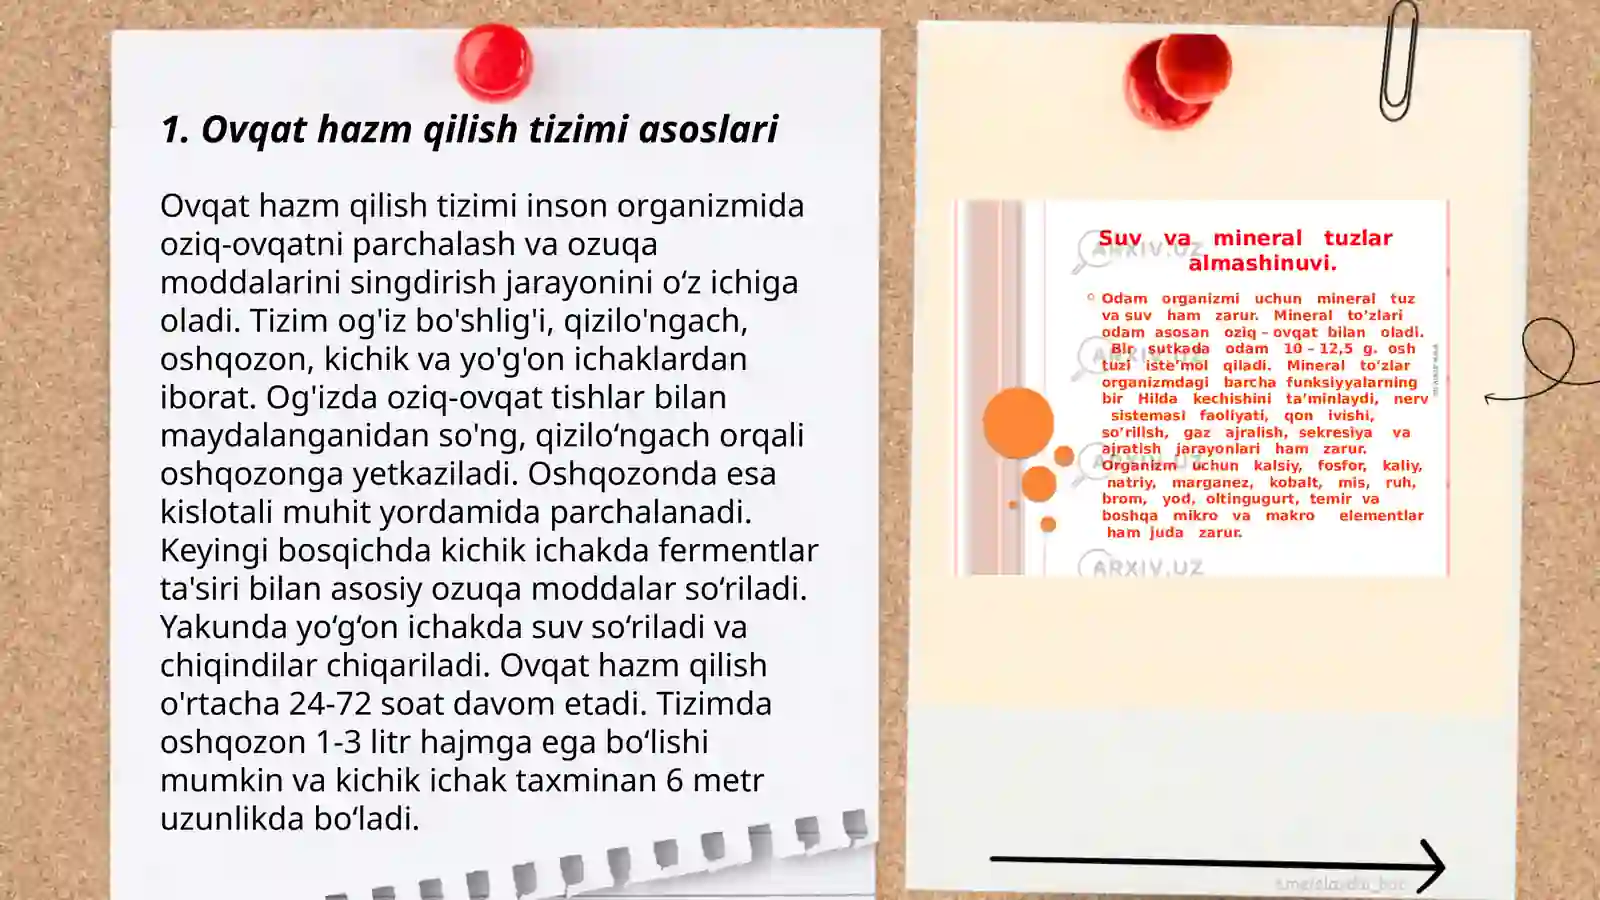 1. Ovqat hazm qilish tizimi asoslari
Ovqat hazm qilish tizimi inson organizmida
oziq-ovqatni parchalash va ozuqa
moddalarini singdirish jarayonini o‘z ichiga
oladi. Tizim og'iz bo'shlig'i, qizilo'ngach,
oshqozon, kichik va yo'g'on ichaklardan
iborat. Og'izda oziq-ovqat tishlar bilan
maydalanganidan so'ng, qizilo‘ngach orqali
oshqozonga yetkaziladi. Oshqozonda esa
kislotali muhit yordamida parchalanadi.
Keyingi bosqichda kichik ichakda fermentlar
ta'siri bilan asosiy ozuqa moddalar so‘riladi.
Yakunda yo‘g‘on ichakda suv so‘riladi va
chiqindilar chiqariladi. Ovqat hazm qilish
o'rtacha 24-72 soat davom etadi. Tizimda
oshqozon 1-3 litr hajmga ega bo‘lishi
mumkin va kichik ichak taxminan 6 metr
uzunlikda bo‘ladi.
Suv va mineral tuzlar
almashinuvi.
Odam organizmi uchun mineral tuz
va suv ham zarur. Mineral to’zlari
odam asosan oziq – ovqat bilan oladi.
Bir sutkada odam 10 – 12,5 g. osh
tuzi iste’mol qiladi. Mineral to’zlar
organizmdagi barcha funksiyyalarning
bir Hilda kechishini ta’minlaydi, nerv
sistemasi faoliyati, qon ivishi,
so’rilish, gaz ajralish, sekresiya va
ajratish jarayonlari ham zarur.
Organizm uchun kalsiy, fosfor, kaliy,
natriy, marganez, kobalt, mis, ruh,
brom, yod, oltingugurt, temir va
boshqa mikro va makro elementlar
ham juda zarur.
ARXIV.UZ
ARXIV.UZ
ARXIV.UZ
ARXIV.UZ